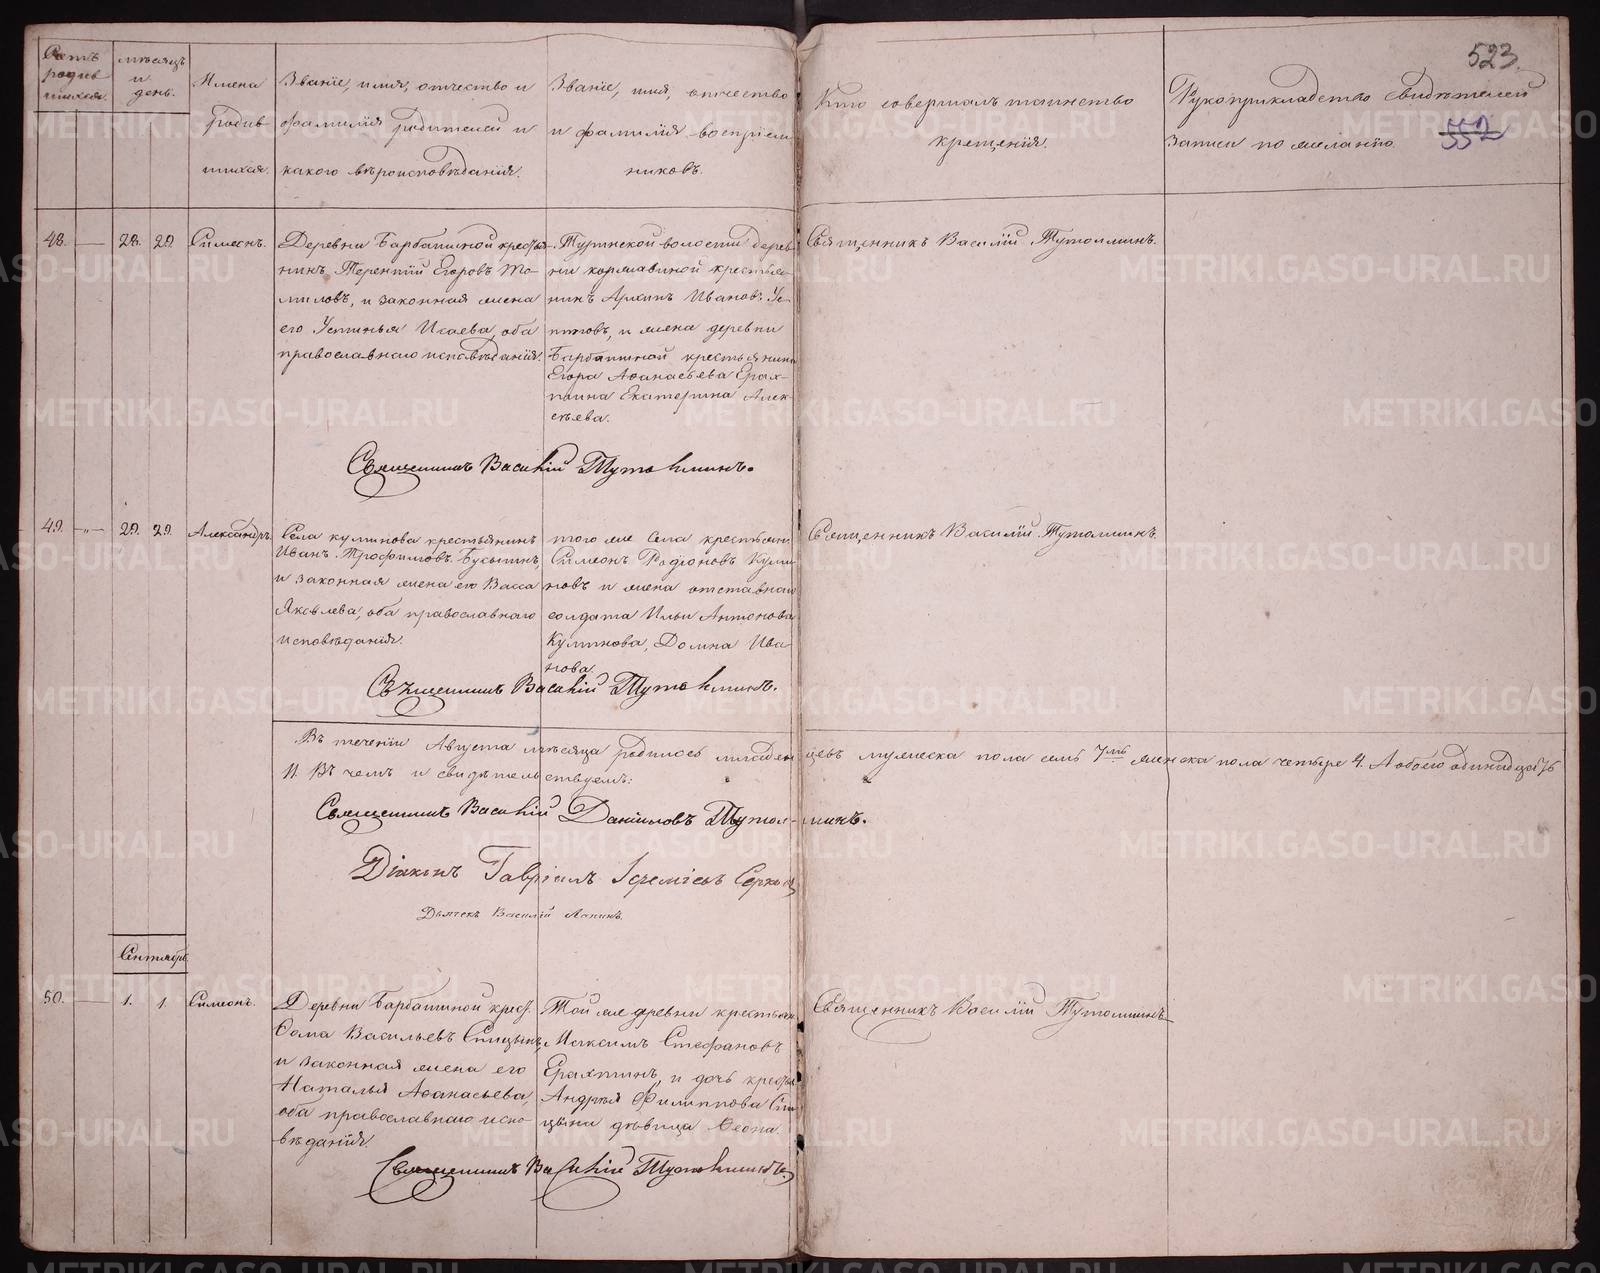 523.
552
Счетъ родив шихся.
мѣсяцъ и день.
Имена родив шихся.
Званіе, имя, отчество и
фамилія родителей и
какого вѣроисповѣданія.
Званіе, имя, отчество
и фамилія воспріем
никовъ.
Кто совершалъ таинство
крещенія.
Рукоприкладство свидѣтелей
записи по желанію.
48. 28. 29. Симеонъ.
Деревни Барбашиной крестья
нинъ Терентій Егоровъ То-
миловъ, и законная жена
его Устинья Исаева, оба
православнаго исповѣданія.
Туринской волости дерев
ни кормовиной крестья
нинъ Архипъ Ивановъ
и жена деревни
Барбашиной крестьянина
Егора Аѳанасьева Ерах-
тина Екатерина Алек-
сѣева.
Священникъ Василій Тутолминъ.
Священникъ Василій Тутолминъ.
49. „ 29. 29. Александръ.
Села куминова крестьянинъ
Иванъ Трофимовъ Бусыгинъ,
и законная жена его Васса
Яковлева, оба православнаго
исповѣданія.
того же села крестьяни
Симеонъ Родіоновъ Куми
новъ и жена отставнаго
солдата Ильи Антонова
Куминова, Домна Ива
нова.
Священникъ Василій Тутолминъ.
Священникъ Василій Тутолминъ.
Въ теченіи Августа мѣсяца родилось младен цевъ мужеска пола семь 7мь женска пола четыре 4. А обоего одинадцать
11. Въ чемъ и свидѣтельствуемъ:
Священникъ Василій Даніиловъ Тутол- минъ.
Діаконъ Гавріилъ Іереміевъ
Дьячекъ Василій Лапинъ.
Сентябрь.
50. 1. 1. Симеонъ.
Деревни Барбашиной крест.
Ѳома Васильевъ Спицынъ,
и законная жена его
Наталья Аѳанасьева,
оба православнаго испо-
вѣданія.
Той же деревни крестьян
Максимъ Стефановъ
Ерахтинъ, и дочь крестья
Андрея Филиппова Спи
цына дѣвица Ѳеона.
Священникъ Василій Тутолминъ
Священникъ Василій Тутолминъ.
METRIKI.GASO-URAL.RU